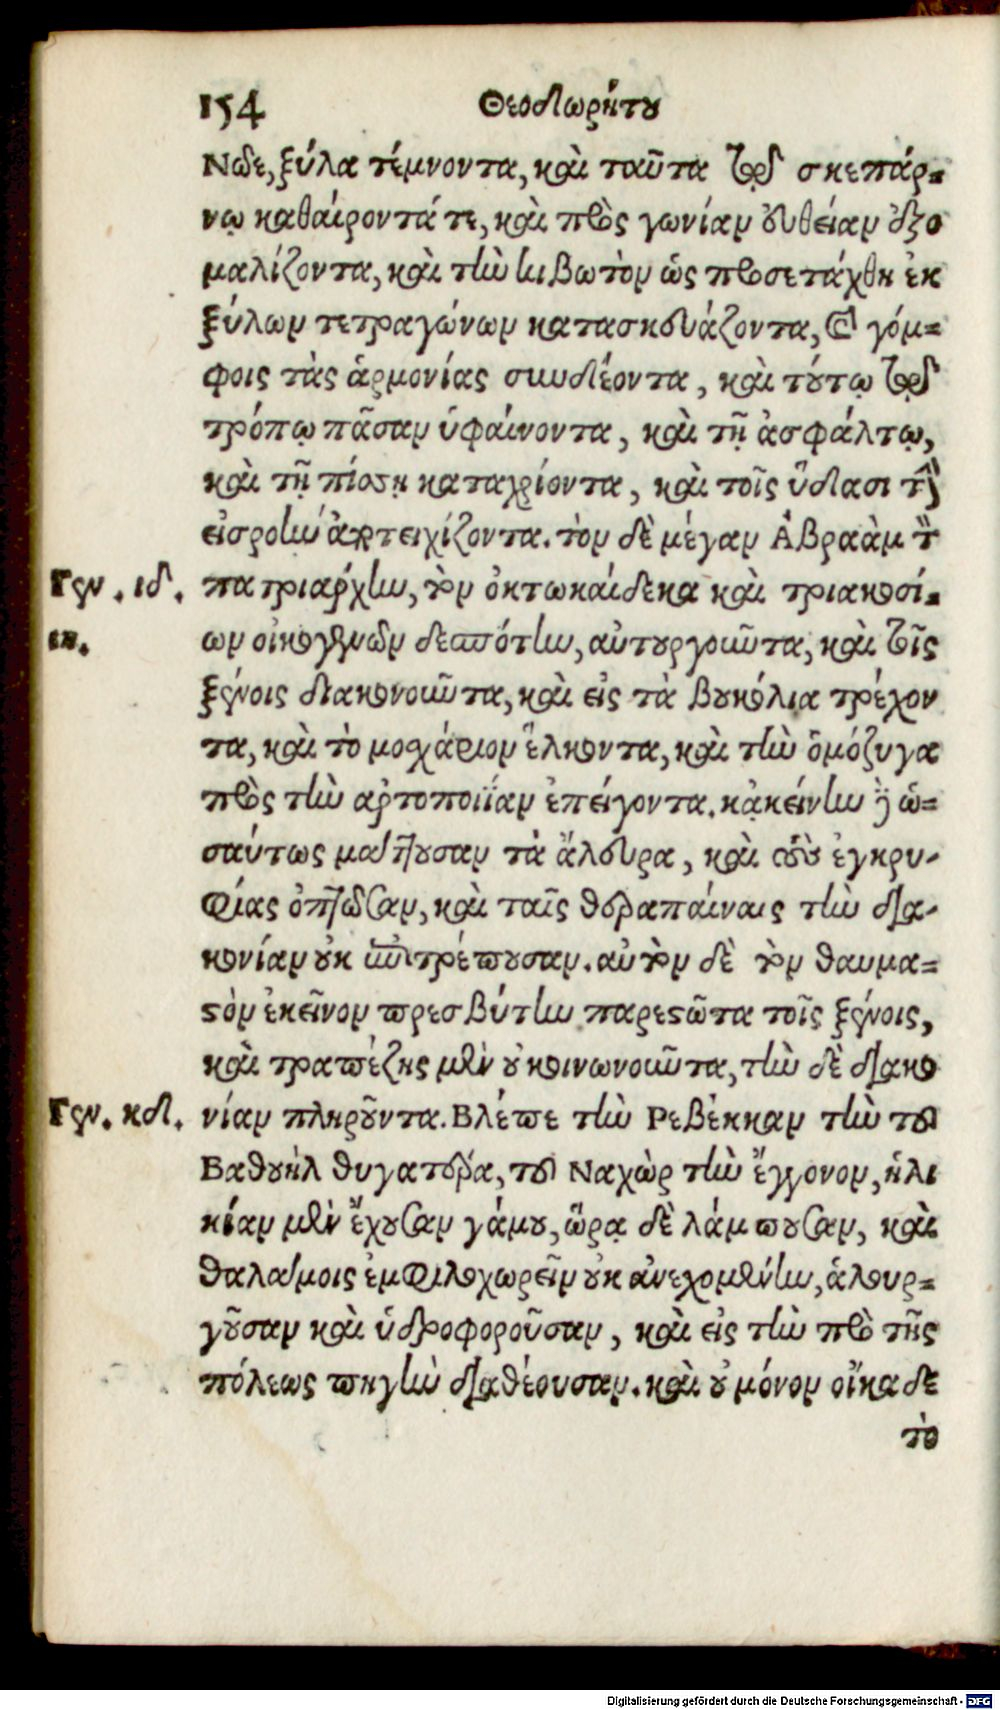 154 Θεοδωρήτου
Νῶε, ξύλα τέμνοντα, καὶ ταῦτα τῷ σκεπάρ-
νῳ καθαίροντά τε, καὶ πρὸς γωνίαν εὐθεῖαν ἐξο
μαλίζοντα, καὶ τὴν κιβωτὸν ὡς προσετάχθη ἐκ
ξύλων τετραγώνων κατασκευάζοντα, καὶ γόμ-
φοις τὰς ἁρμονίας συνδέοντα, καὶ τούτῳ τῷ
τρόπῳ πᾶσαν ὑφαίνοντα, καὶ τῇ ἀσφάλτῳ,
καὶ τῇ πίσσῃ καταχρίοντα, καὶ τοῖς ὕδασι τὴν
εἰσροὴν ἀποτειχίζοντα. τὸν δὲ μέγαν Ἀβραὰμ τὸν
Γεν. ιδ. πατριάρχην, τὸν ὀκτωκαίδεκα καὶ τριακοσί-
ιη. ων οἰκογενῶν δεσπότην, αὐτουργοῦντα, καὶ τοῖς
ξένοις διακονοῦντα, καὶ εἰς τὰ βουκόλια τρέχον
τα, καὶ τὸ μοσχάριον ἕλκοντα, καὶ τὴν ὁμόζυγα
πρὸς τὴν ἀρτοποιΐαν ἐπείγοντα. κᾀκείνην δὲ ὡ-
σαύτως μάττουσαν τὰ ἄλευρα, καὶ τοὺς ἐγκρυ-
φίας ὀπτῶσαν, καὶ ταῖς θεραπαίναις τὴν δια-
κονίαν οὐκ ἐπιτρέπουσαν. αὐτὸν δὲ τὸν θαυμα-
στὸν ἐκεῖνον πρεσβύτην παρεστῶτα τοῖς ξένοις,
καὶ τραπέζης μὲν οὐ κοινωνοῦντα, τὴν δὲ διακο
Γεν. κδ. νίαν πληροῦντα. Βλέπε τὴν Ρεβέκκαν τὴν τοῦ
Βαθουὴλ θυγατέρα, τοῦ Ναχὼρ τὴν ἔγγονον, ἡλι
κίαν μὲν ἔχουσαν γάμου, ὥρᾳ δὲ λάμπουσαν, καὶ
θαλάμοις ἐμφιλοχωρεῖν οὐκ ἀνεχομένην, ἁλουρ-
γοῦσαν καὶ ὑδροφοροῦσαν, καὶ εἰς τὴν πρὸ τῆς
πόλεως πηγὴν διαθέουσαν. καὶ οὐ μόνον οἴκαδε
τὸ
Digitalisierung gefördert durch die Deutsche Forschungsgemeinschaft - DFG